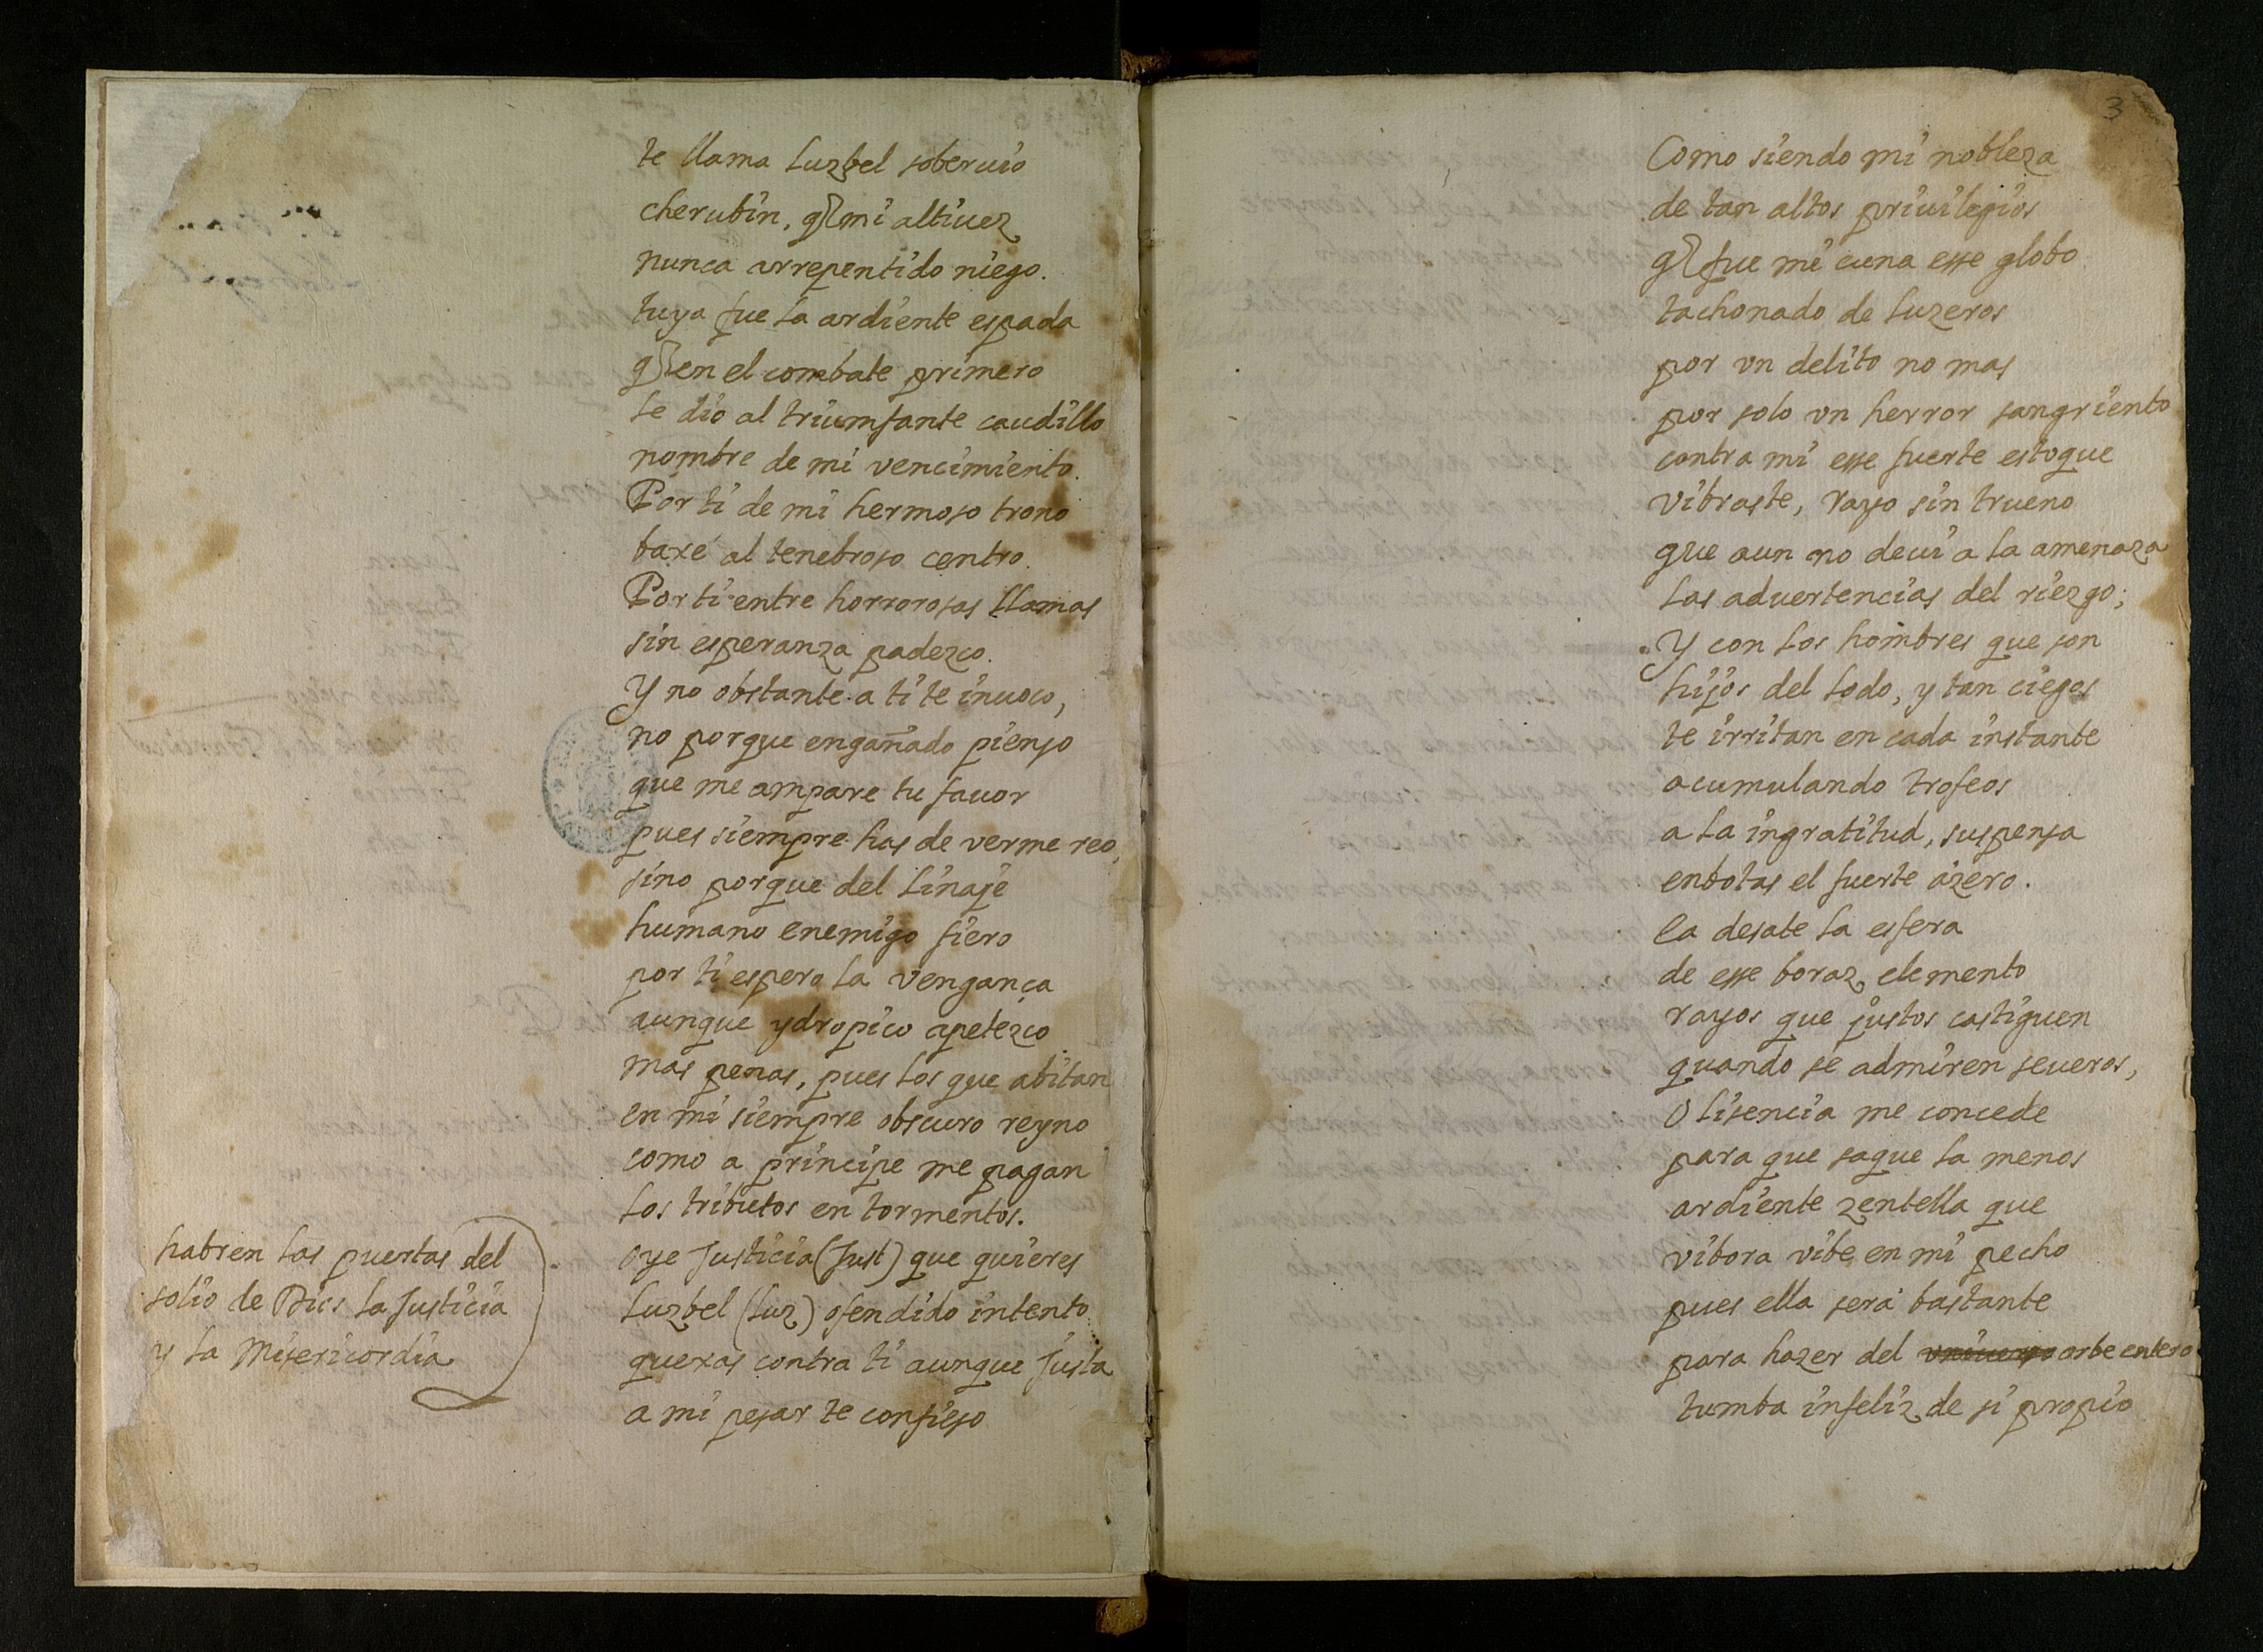 te llama Luzbel soberuio
cherubin, q̃ mi altiuez
nunca arrepentido niego.
tuya fue la ardiente espada
q̃ en el combate primero
le dio al triumfante caudillo
nombre de mi vencimiento.
Por ti de mi hermoso trono
baxé al tenebroso centro.
Por ti entre horrorosas llamas
sin esperanza padezco.
Y no obstante a ti te inuoco,
no porque engañado pienso
que me ampare tu fauor
pues siempre has de verme reo,
sino porque del linaje
humano enemigo fiero
por ti espero la vengança
aunque ydropico apetezco
mas penas, pues los que abitan
en mi siempre obscuro reyno
como a principe me pagan
los tributos en tormentos.
habren las puertas del
solio de Dios la Justicia
y la Misericordia
oye Justicia (Just) que quieres
Luzbel (Luz) ofendido intento
quexas contra ti aunque Justa
a mi pesar te confieso
3
Como siendo mi nobleza
de tan altos priuilegios
q̃ fue mi cuna esse globo
tachonado de luzeros
por vn delito no mas
por solo vn herror sangriento
contra mi esse fuerte estoque
vibraste, rayo sin trueno
que aun no deui a la amenaza
las aduertencias del riezgo;
Y con los hombres que son
hijos del lodo, y tan ciegos
te irritan en cada instante
acumulando trofeos
a la ingratitud, suspensa
enbotas el fuerte ázero.
Ea desate la esfera
de esse boraz elemento
rayos que justos castiguen
quando se admiren seueros,
O lisencia me concede
para que saque la menos
ardiente zentella que
vibora vibe en mi pecho
pues ella será bastante
para hazer del vniuerso orbe entero
tumba infeliz de si propio